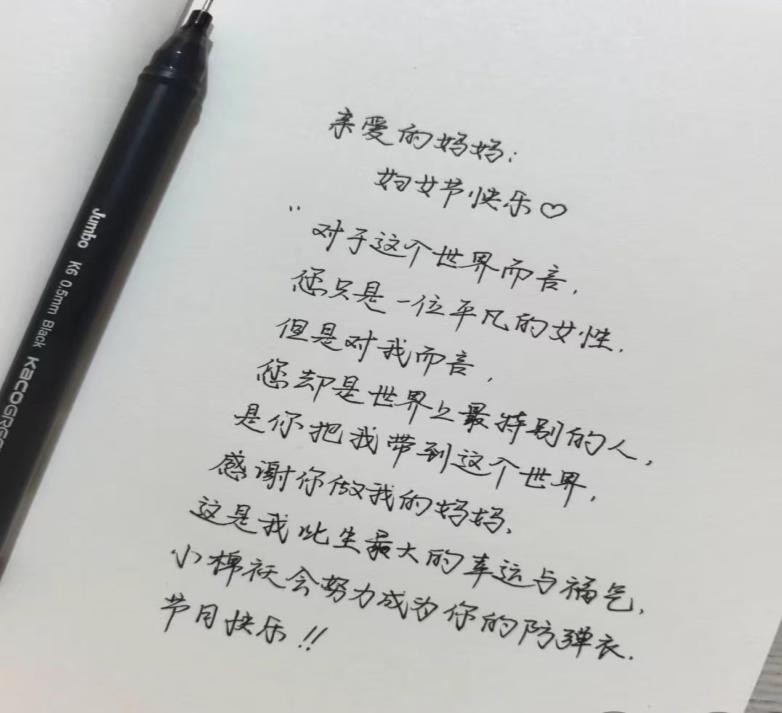 亲爱的妈妈:
妇女节快乐♡
"对于这个世界而言,
您只是一位平凡的女性.
但是对我而言,
您却是世界上最特别的人,
是你把我带到这个世界,
感谢你做我的妈妈,
这是我此生最大的幸运与福气,
小棉袄会努力成为你的防弹衣.
节日快乐!!
Jumbo K6 0.5mm Black KACOGREEN